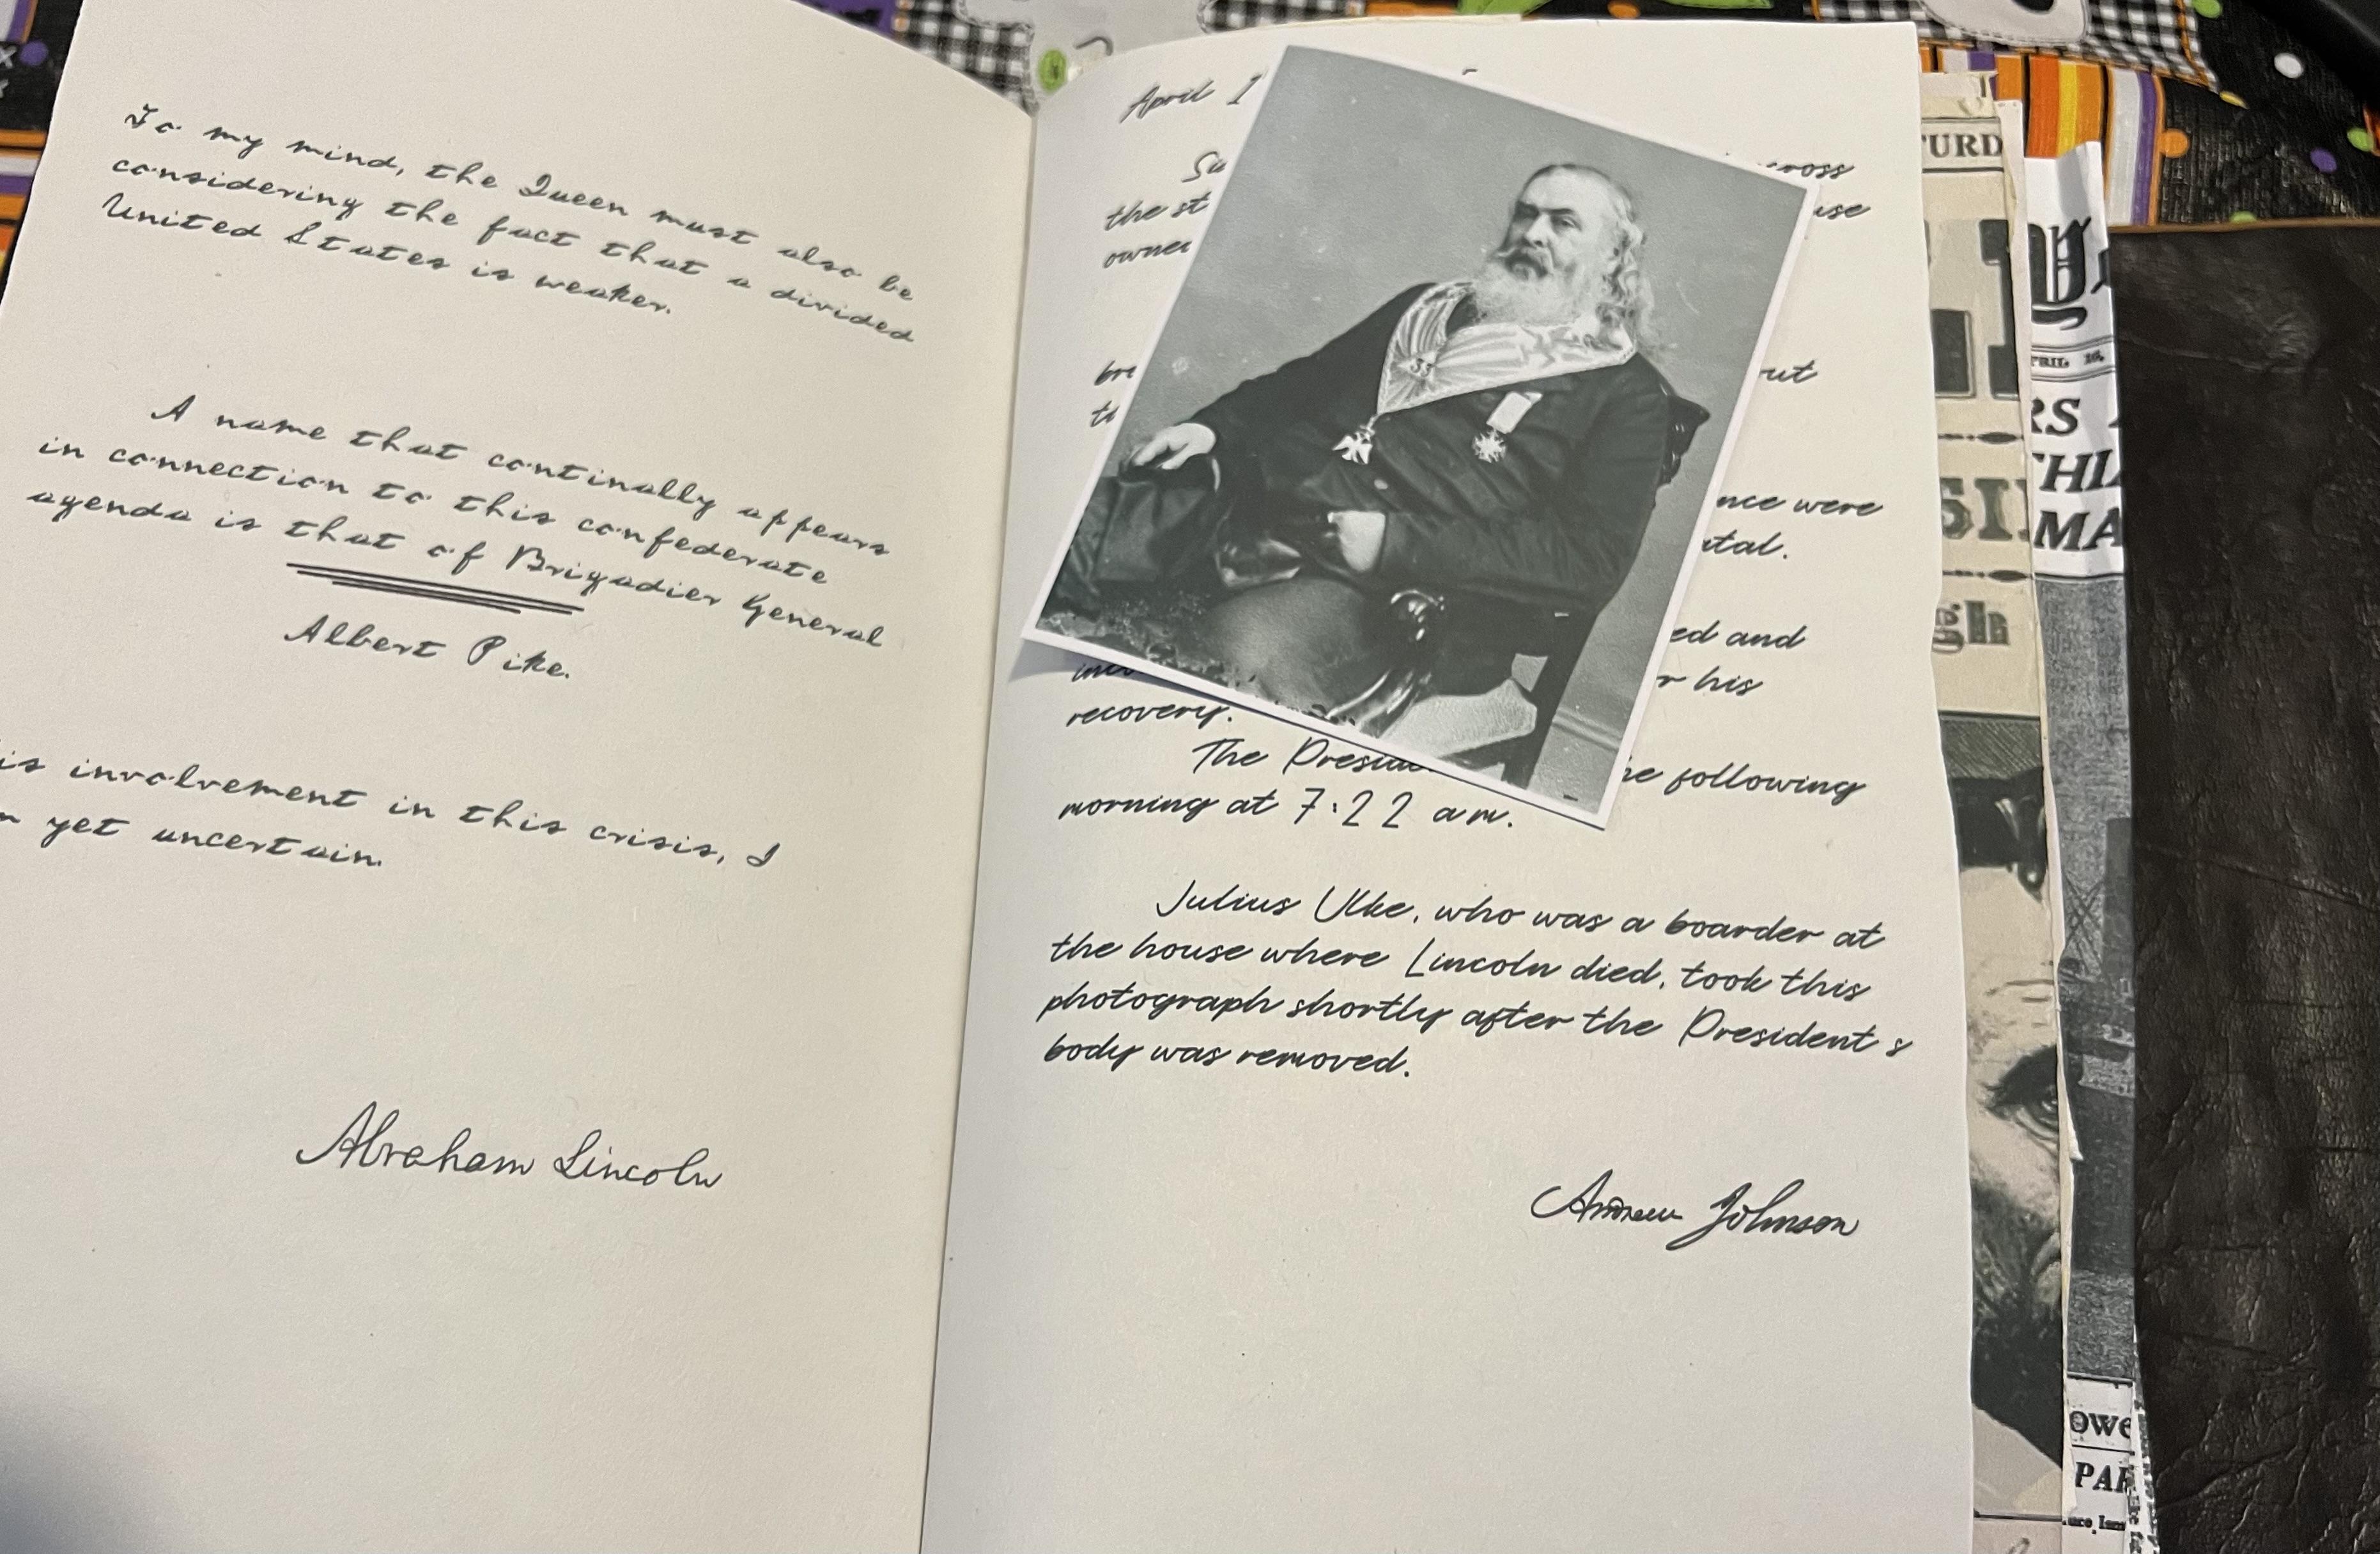 To my mind, the Queen must also be
considering the fact that a divided
United States is weaker.
A name that continally appears
in connection to this confederate
agenda is that of Brigadier General
Albert Pike.
involvement in this crisis, I
yet uncertain.
Abraham Lincoln
April 1
the st
owner
33
nce were
ed and
his
recovery.
The following
morning at 7:22 am.
Julius Ulke, who was a boarder at
the house where Lincoln died, took this
photograph shortly after the President s
body was removed.
Andrew Johnson
TURD
GH
RS
THI
MA
OWE
PAR